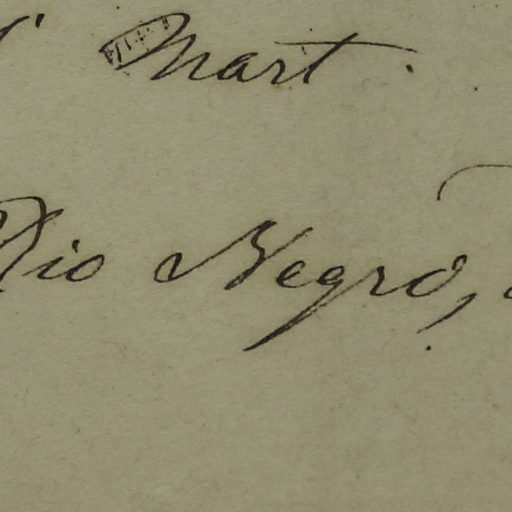 Mart.
Rio Negro,